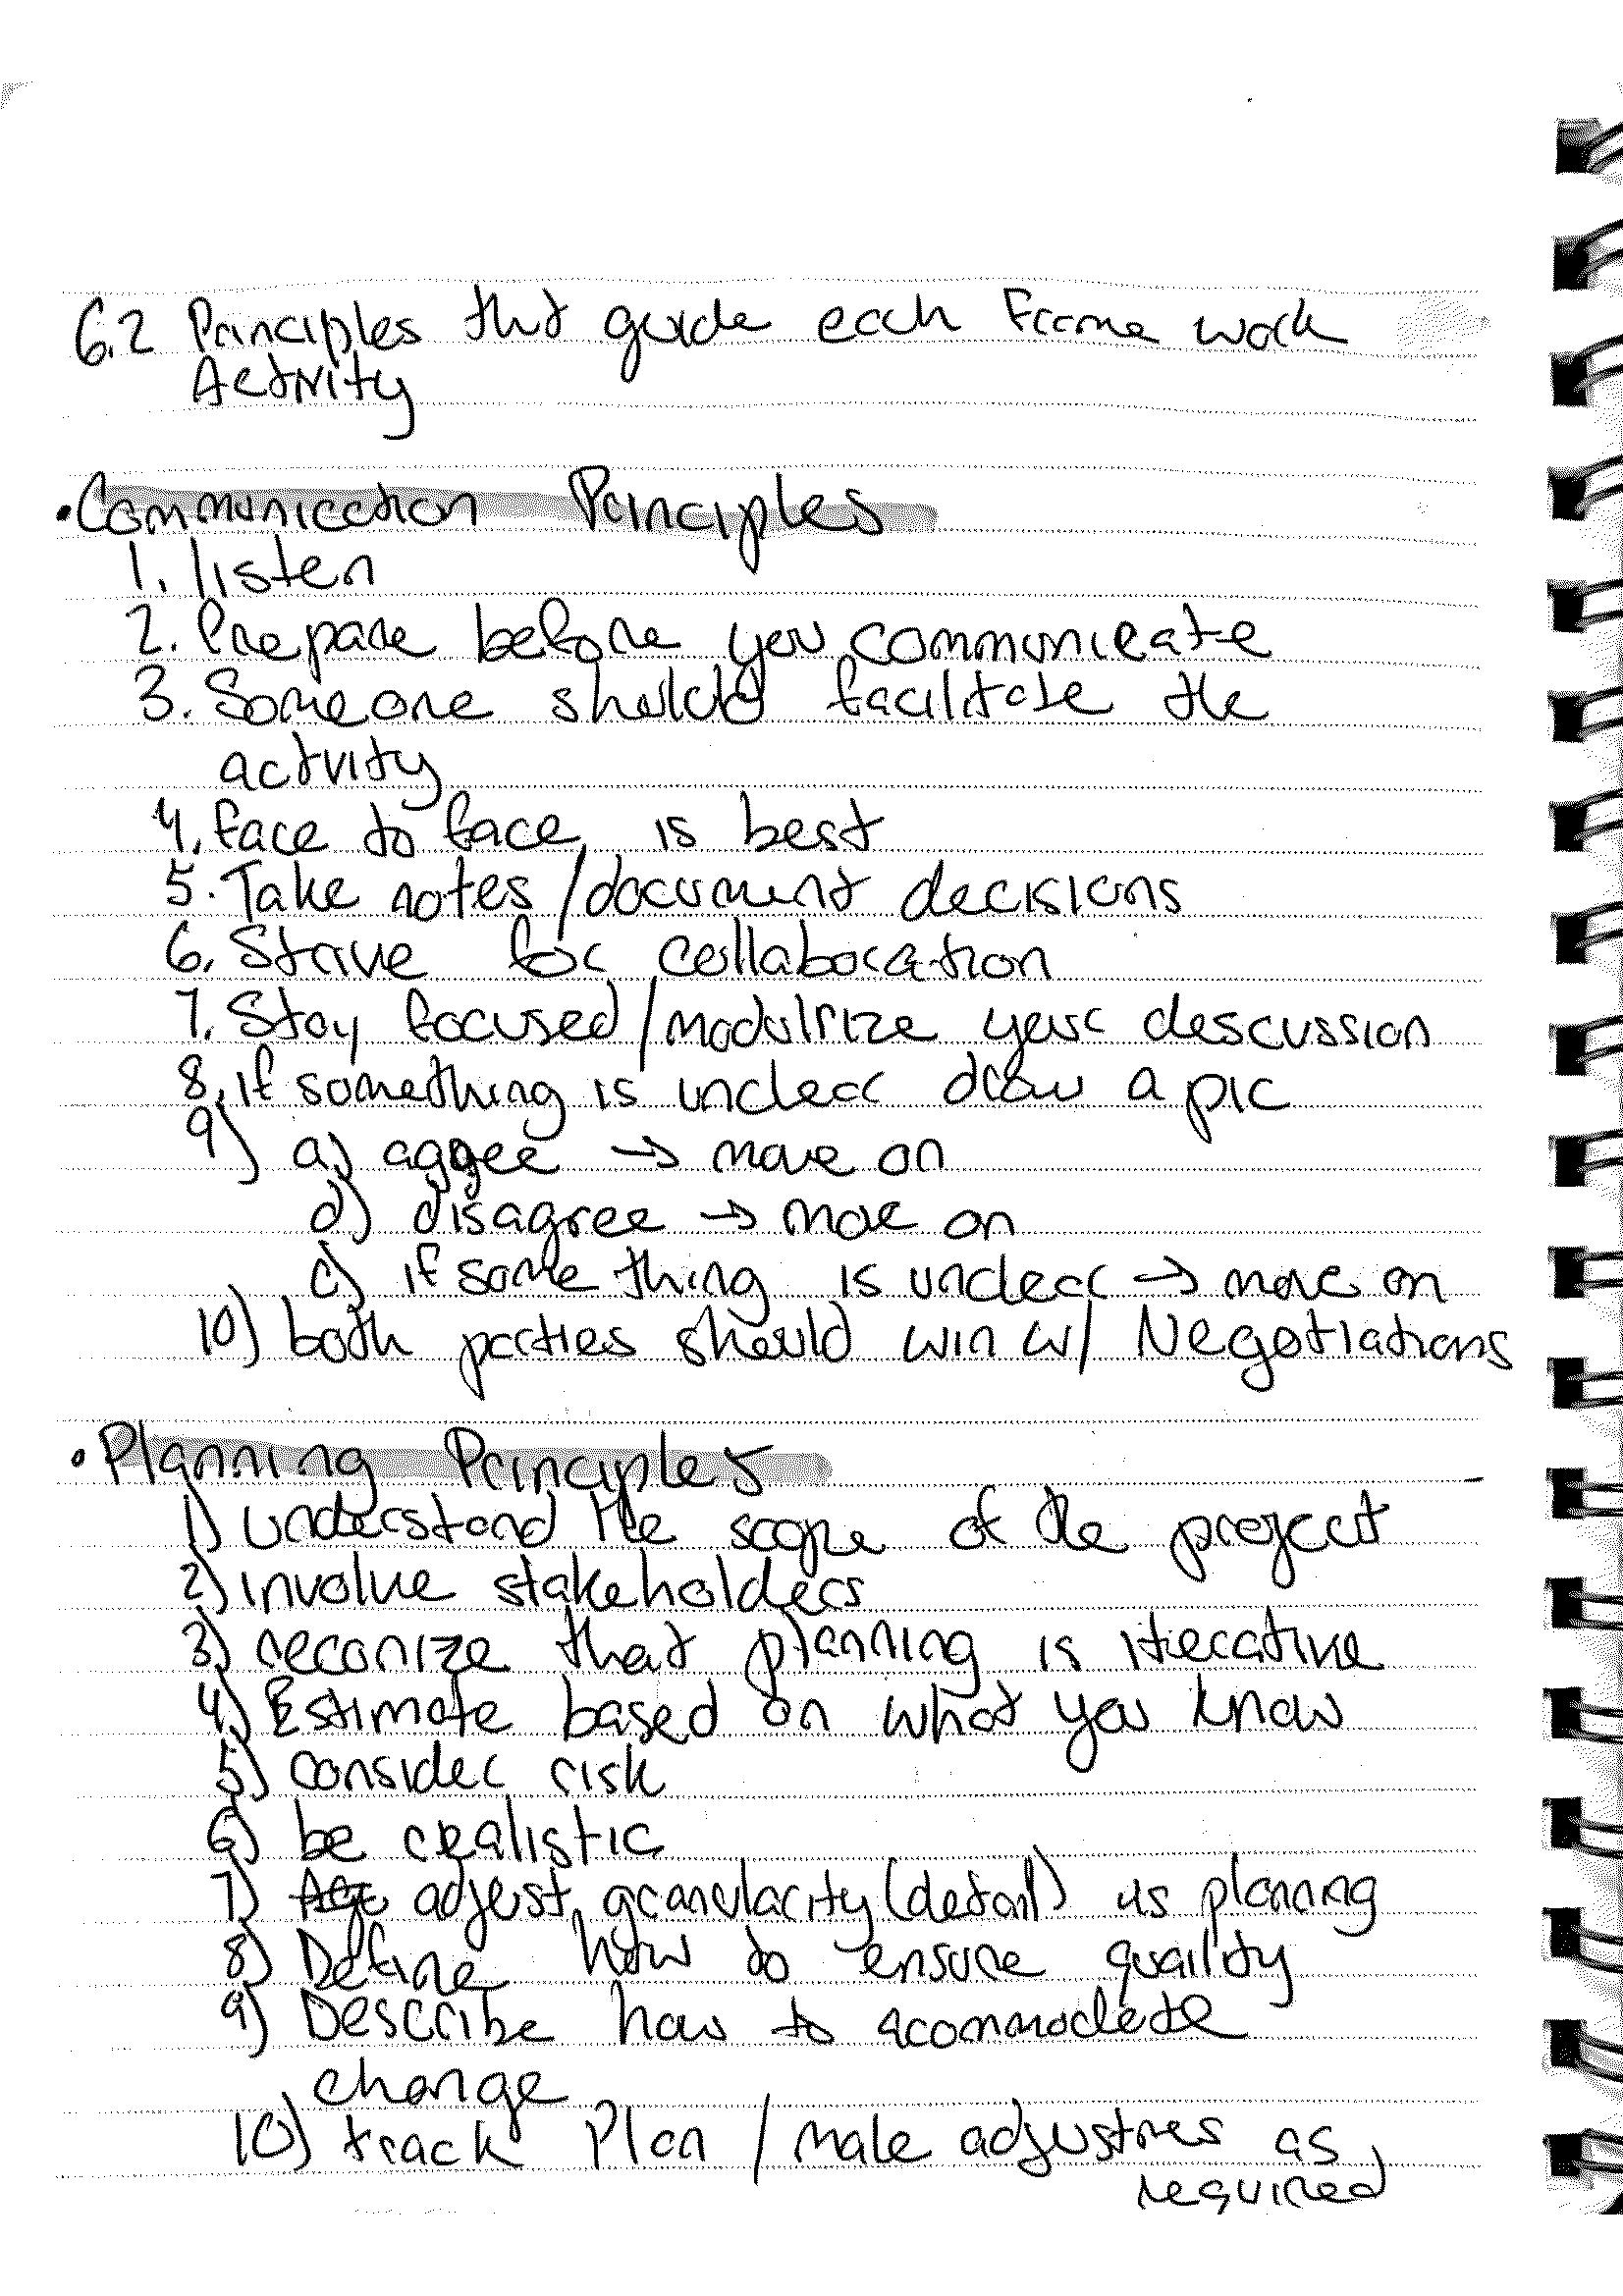 6.2 Principles that guide each Frame work
Activity
• Communication Principles
1. listen
2. Prepare before you communicate
3. Someone should facilitate the
activity
4. face to face is best
5. Take notes / document decisions
6. Strive for collaboration
7. Stay focused / modulrize your descussion
8. if something is unclear draw a pic
9) a) aggree → move on
d) disagree → move on
c) if some thing is unclear → move on
10) both parties should win w/ Negotiations
• Planning Principles
1) understand the scope of the project
2) involve stakeholders
3) reconize that planning is iterative
4) Estimate based on what you know
5) consider risk
6) be realistic
7) adjust granularity (detail) as planning
8) Define how to ensure quaility
9) Describe how to acommodate
change
10) track Plan / make adjustmes as
required